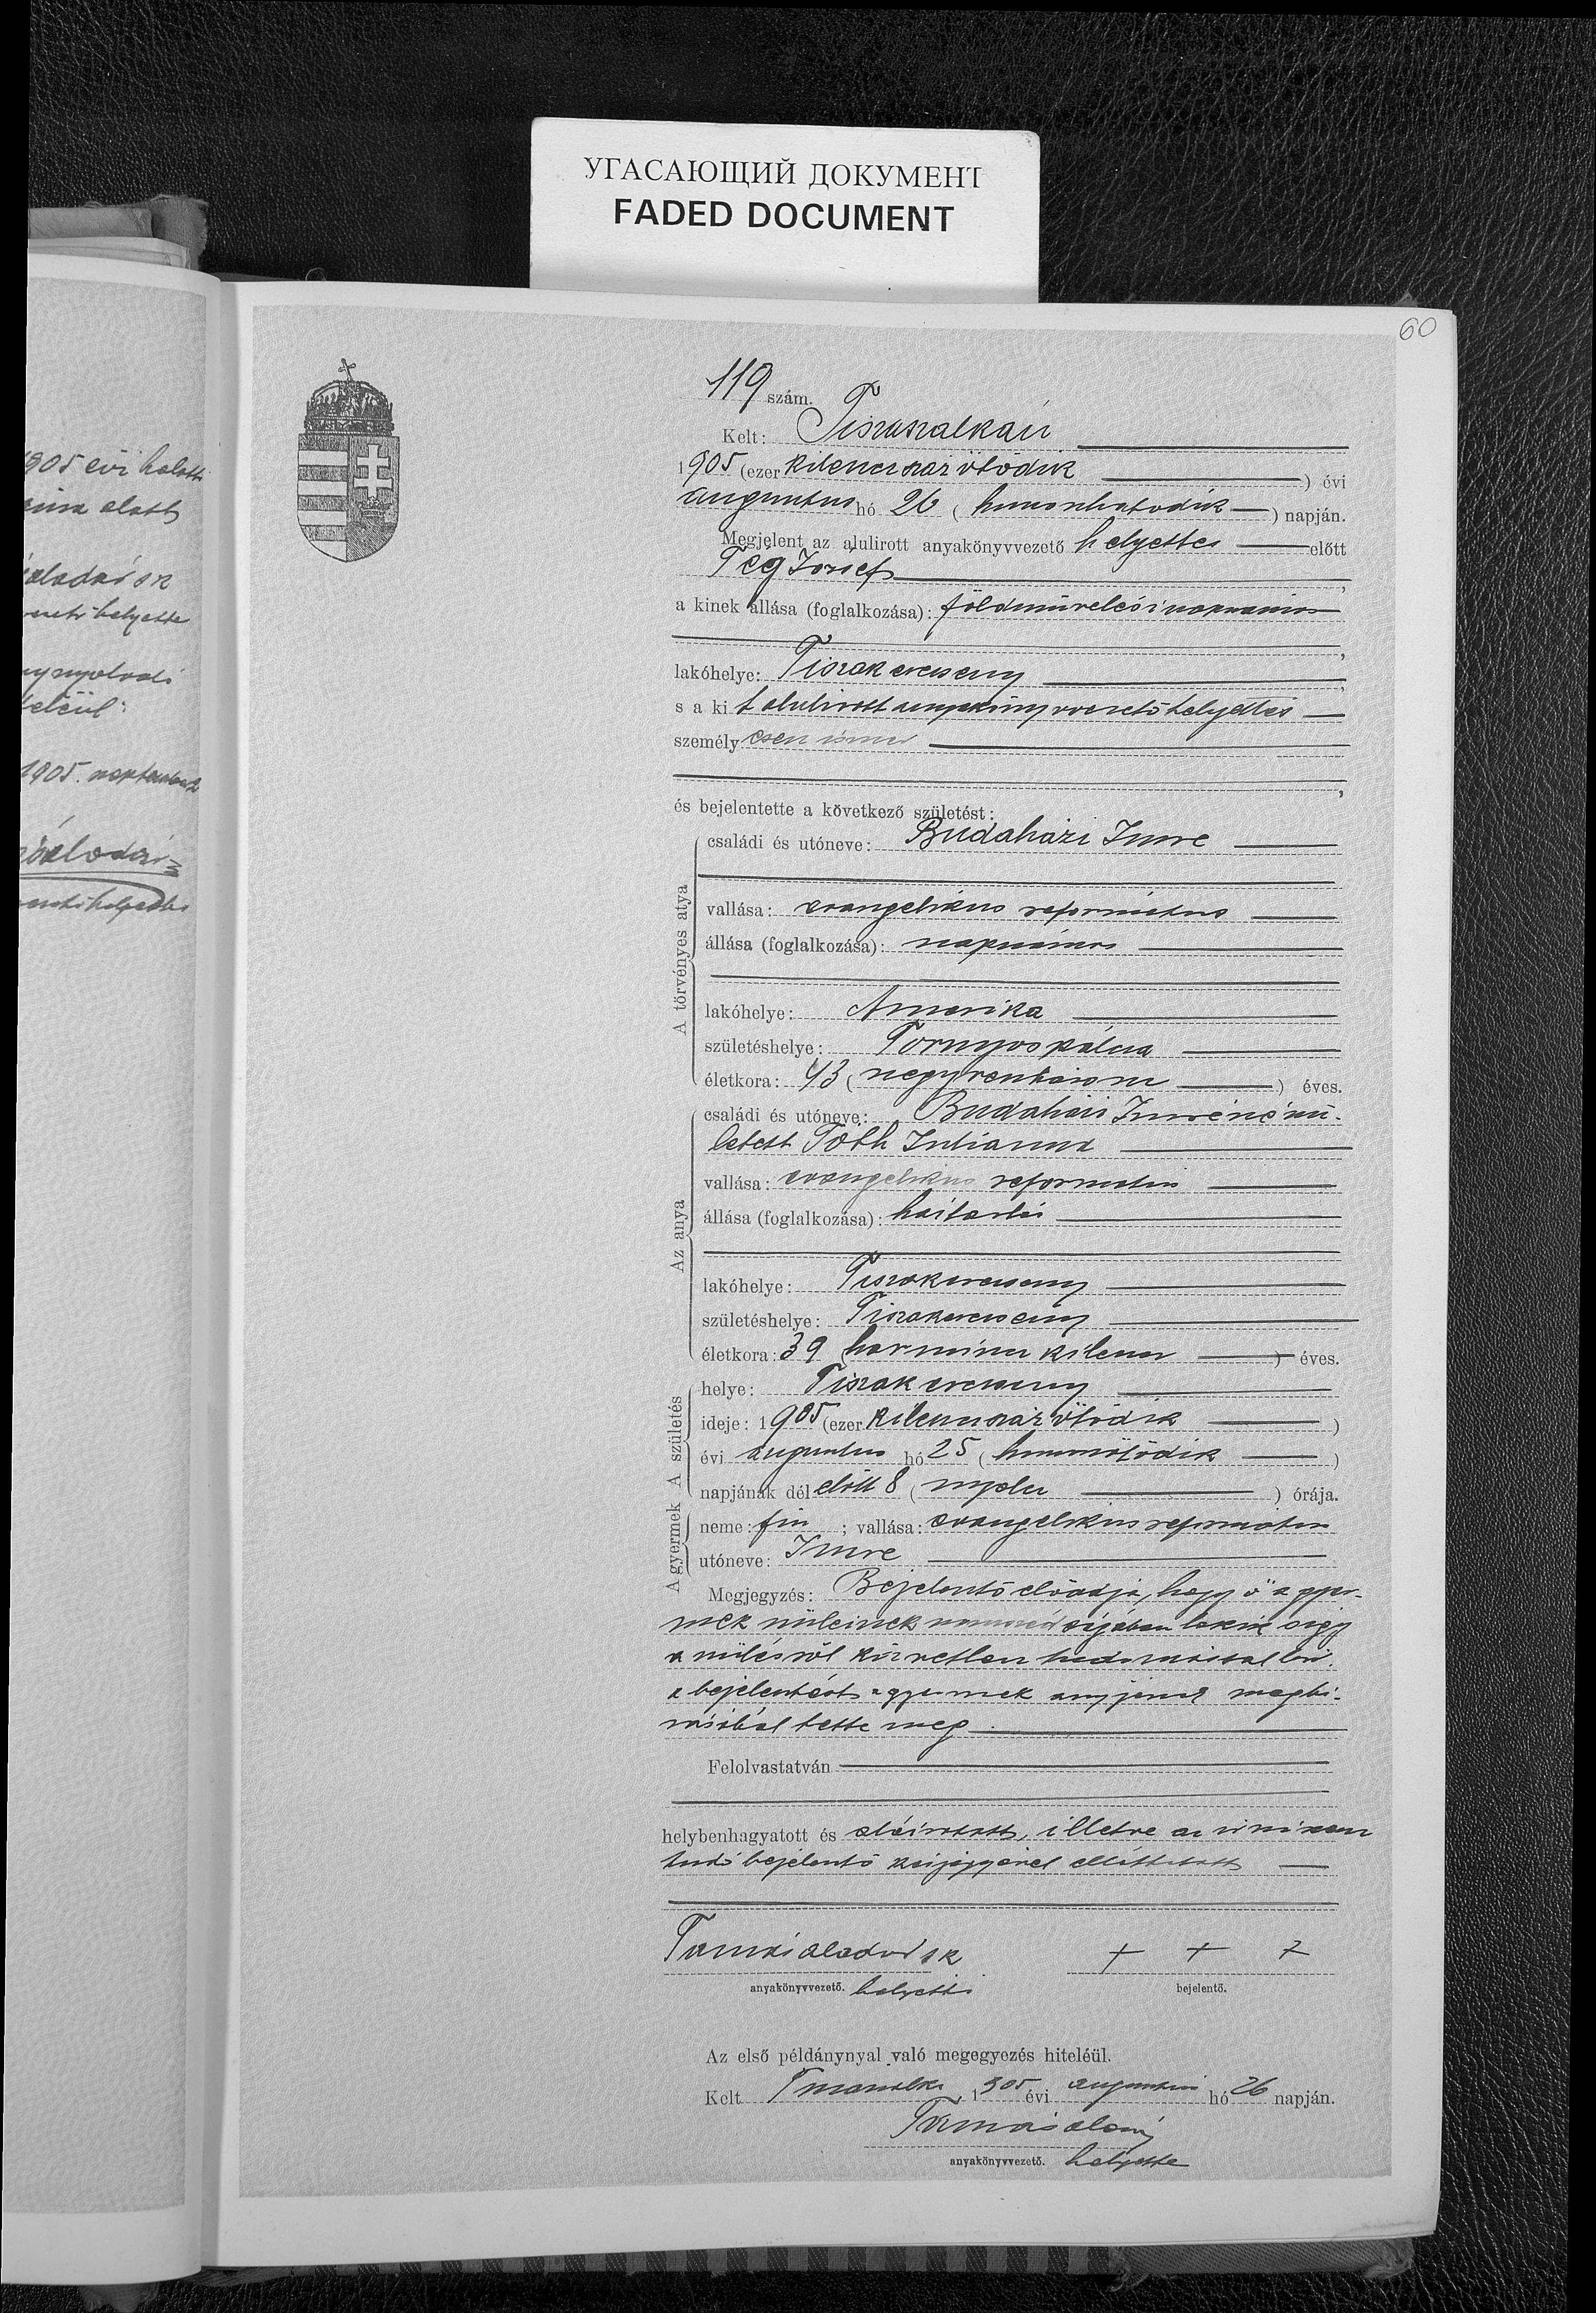 УГАСАЮЩИЙ ДОКУМЕНТ
FADED DOCUMENT
60
905 évi
alatt
helyette
1905. 
119 szám.
Kelt: Tiszaszalkán
1905 (ezer kilenczszáz ötödik) évi
augusztus hó 26 (huszonhatodik) napján.
Megjelent az alulirott anyakönyvvezető helyettes előtt
Tég József,
a kinek állása (foglalkozása): földmüvelési napszámos,
lakóhelye: Tiszakerecseny,
s a kit alulirott anyakönyvvezető helyettes
személyesen ismer,
és bejelentette a következő születést:
A törvényes atya
családi és utóneve: Budaházi Imre
vallása: evangelikus református
állása (foglalkozása): napszámos
lakóhelye: Amerika
születéshelye: Tornyospálcza
életkora: 43 (negyvenhárom) éves.
Az anya
családi és utóneve: Budaházi Imréné szü-
letett Tóth Julianna
vallása: evangelikus református
állása (foglalkozása): háztartási
lakóhelye: Tiszakerecseny
születéshelye: Tiszakerecseny
életkora: 39 (harminczkilencz) éves.
A gyermek A születés
helye: Tiszakerecseny
ideje: 1905 (ezer kilenczszáz ötödik)
évi augusztus hó 25 (huszonötödik)
napjának dél előtt 8 (nyolcz) órája.
neme: fiu; vallása: evangelikus református
utóneve: Imre
Megjegyzés: Bejelentő előadja, hogy ő a gyer-
mek szüleinek szomszédságában lakik s így
a szülésről közvetlen tudomással bir.
a bejelentést a gyermek anyjának megbi-
zásából tette meg.
Felolvastatván
helybenhagyatott és aláiratott, illetve az irni nem
tudó bejelentő kézjegyével elláttatott
Tamás Aladár sk + + +
anyakönyvvezető. helyettes bejelentő.
Az első példánynyal való megegyezés hiteléül.
Kelt Tiszaszalka, 1905 évi augusztus hó 26 napján.
Tamás Aladár
anyakönyvvezető. helyettes